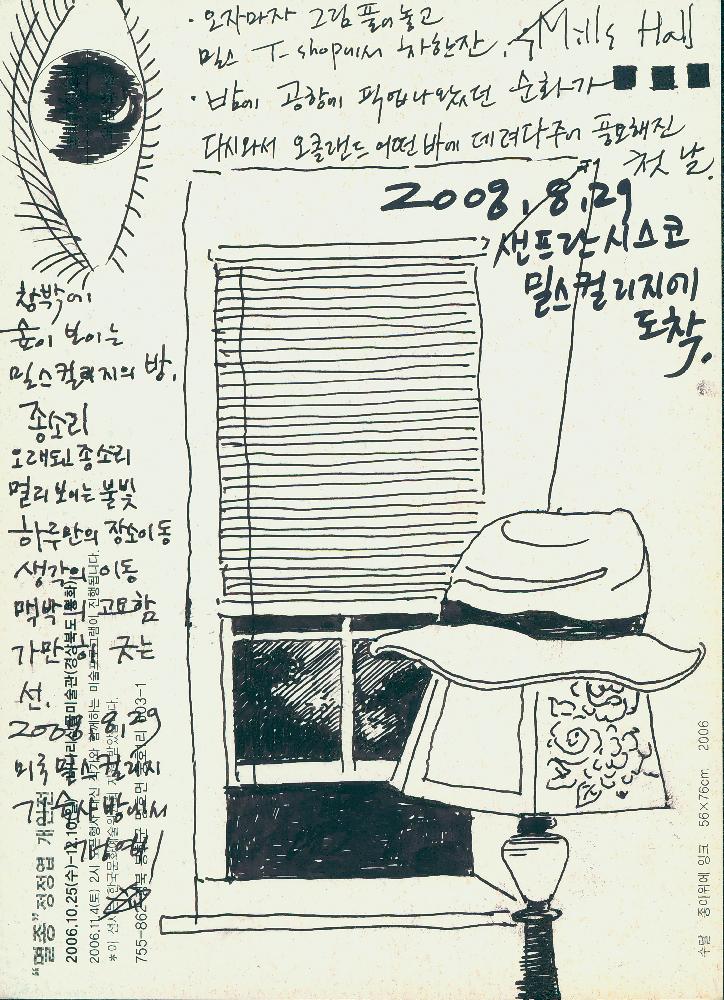 · 오자마자 그림 풀어놓고
밀스 T-shop에서 차한잔.
Mills Hall
· 밤에 공항에 픽업나왔던 순화가
다시와서 오클랜드 어떤 바에 데려다주어 풍요해진
첫 날.
2008. 8. 29
샌프란시스코
밀스컬리지에
도착.
창밖에
숲이 보이는
밀스컬리지의 방.
종소리
오래된 종소리
멀리 보이는 불빛
하루만의 장소이동
생각의 이동
맥박의 고요함
가만히 긋는
선.
2008. 8. 29
미국 밀스컬리지
기숙사 방에서
"멸종" 정정엽 개인전
2006.10.25(수)-12.10(일)
2006.11.4(토) 2시
755-862
수달 종이위에 잉크 56×76cm 2006